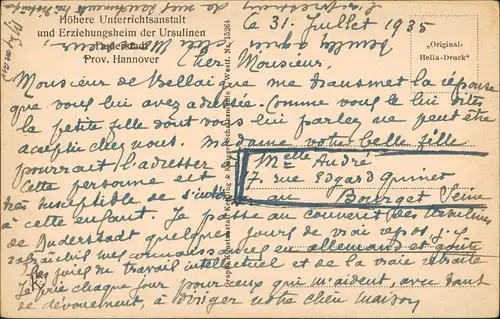 Höhere Unterrichtsanstalt
und Erziehungsheim der Ursulinen
Duderstadt
Prov. Hannover
„Original-
Helia-Druck"
le 31 Juillet 1935
Cher Monsieur,
Monsieur de Bellaigue me transmet la réponse
que vous lui avez adressée. Comme vous le lui dites
la petite fille dont vous lui parlez ne peut être
acceptée chez nous. Madame votre belle fille
pourrait l'adresser
Melle André
7, rue Edgard Quinet
au Bourget Seine
Cette personne est
très susceptible de
à cette enfant. Je passe au couvent des Ursulines
de Duderstadt quelques jours de vrai repos. Je
rafraîchis mes connaissances en allemand et goûte
les joies du travail intellectuel et de la vraie retraite
Je prie chaque jour pour ceux qui m'aident, avec tant
de dévouement, à diriger notre chère maison